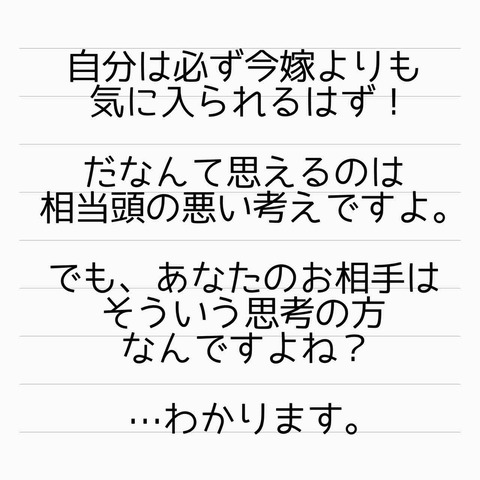 自分は必ず今嫁よりも
気に入られるはず！
だなんて思えるのは
相当頭の悪い考えですよ。
でも、あなたのお相手は
そういう思考の方
なんですよね？
…わかります。